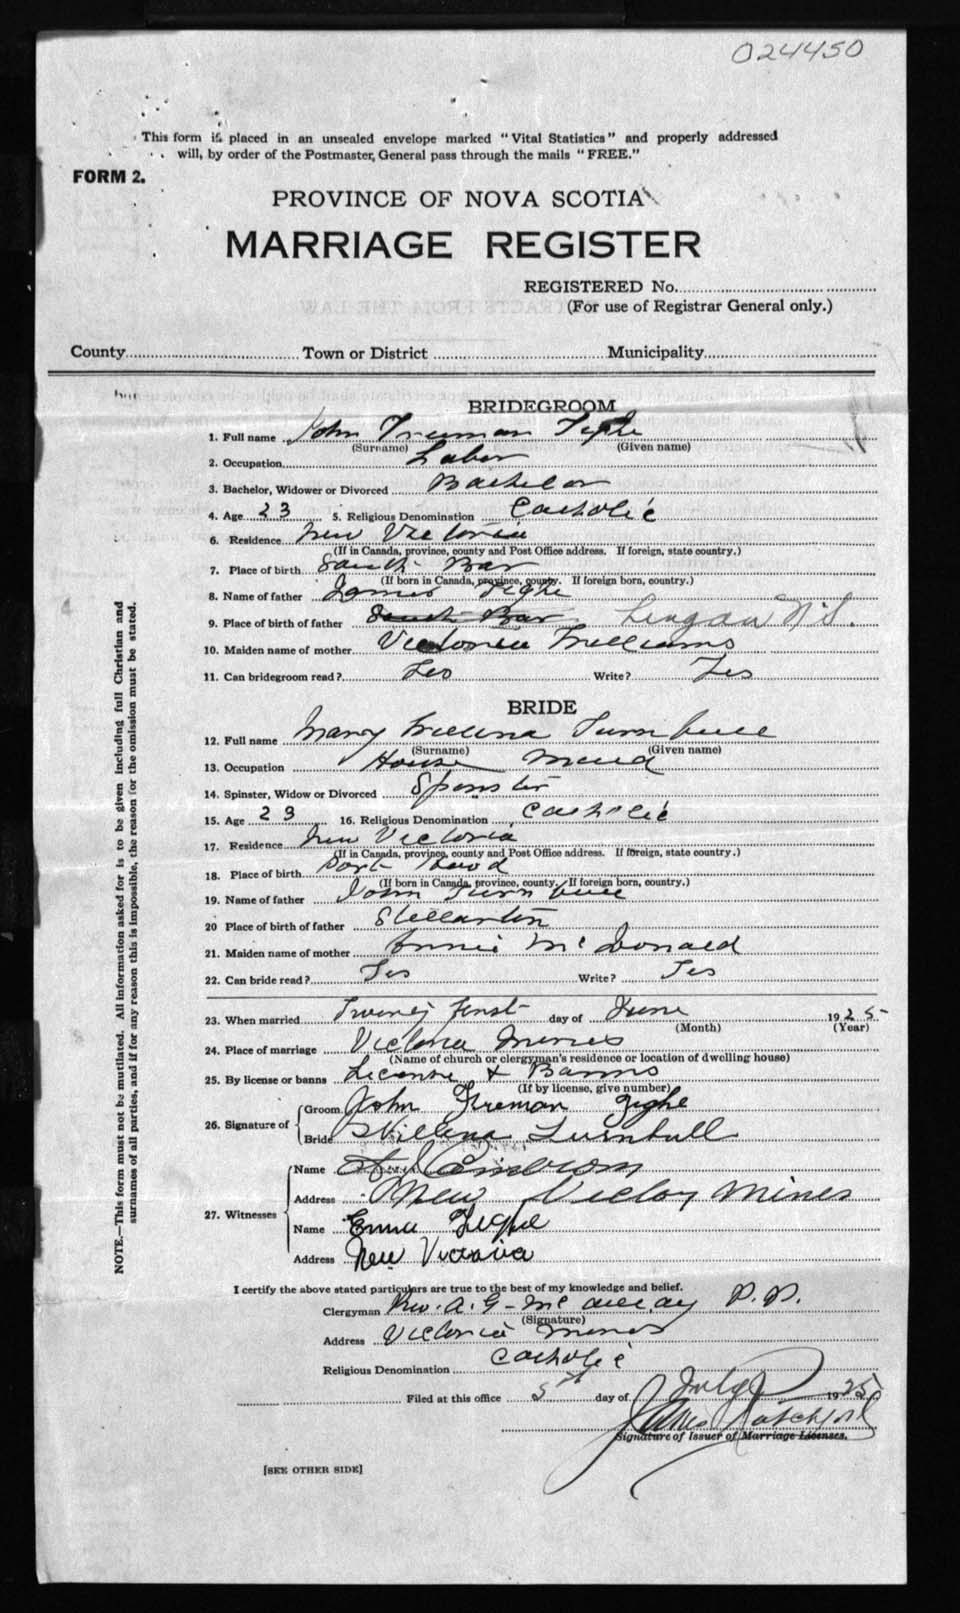 024450
This form is placed in an unsealed envelope marked "Vital Statistics" and properly addressed
will, by order of the Postmaster General pass through the mails "FREE."
FORM 2.
PROVINCE OF NOVA SCOTIA
MARRIAGE REGISTER
REGISTERED No.
(For use of Registrar General only.)
County Town or District Municipality
BRIDEGROOM
1. Full name John Freeman Tighe
(Surname) (Given name)
2. Occupation Labor
3. Bachelor, Widower or Divorced Bachelor
4. Age 23 5. Religious Denomination Catholic
6. Residence New Victoria
(If in Canada, province, county and Post Office address. If foreign, state country.)
7. Place of birth South Bar
(If born in Canada, province, county. If foreign born, country.)
8. Name of father James Tighe
9. Place of birth of father South Bar Lingan N.S.
10. Maiden name of mother Victoria Williams
11. Can bridegroom read? Yes Write? Yes
BRIDE
12. Full name Mary Willena Turnbull
(Surname) (Given name)
13. Occupation House Maid
14. Spinster, Widow or Divorced Spinster
15. Age 23 16. Religious Denomination Catholic
17. Residence New Victoria
(If in Canada, province, county and Post Office address. If foreign, state country.)
18. Place of birth Port Hood
(If born in Canada, province, county. If foreign born, country.)
19. Name of father John Turnbull
20 Place of birth of father Stellarton
21. Maiden name of mother Annie McDonald
22. Can bride read? Yes Write? Yes
23. When married Twenty first day of June 1925
(Month) (Year)
24. Place of marriage Victoria Mines
(Name of church or clergyman's residence or location of dwelling house)
25. By license or banns License & Banns
(If by license, give number)
26. Signature of Groom John Freman Tighe
Bride Willena Turnbull
27. Witnesses Name
Address New Victoy Mines
Name Emma Tighe
Address New Victoria
I certify the above stated particulars are true to the best of my knowledge and belief.
Clergyman Rev. A. G. P.P.
(Signature)
Address Victoria Mines
Religious Denomination Catholic
Filed at this office 5th day of July 1925
James Ratchford
Signature of Issuer of Marriage Licenses.
[SEE OTHER SIDE]
NOTE.—This form must not be mutilated. All information asked for is to be given including full Christian and
surnames of all parties, and if for any reason this is impossible, the reason for the omission must be stated.